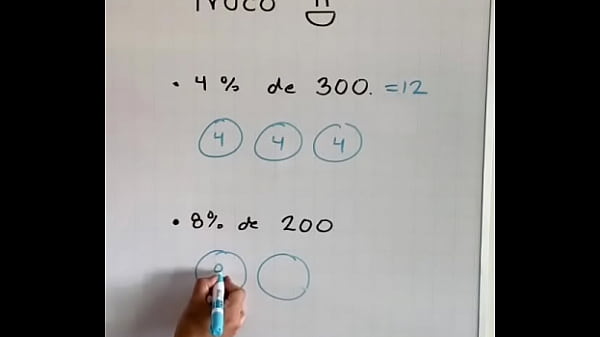 TRUCO
• 4% de 300. =12
4 4 4
• 8% de 200